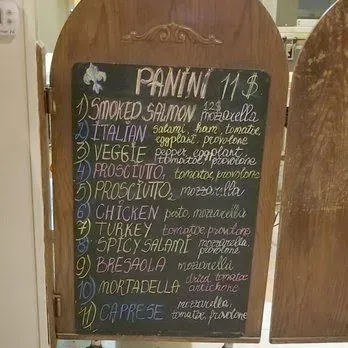 PANINI 11$
1) SMOKED SALMON 12$ mozzarella
2) ITALIAN salami, ham, tomatoe,
eggplant, provolone
3) VEGGIE pepper, eggplant,
tomatoe, provolone
4) PROSCIUTTO, tomatoe, provolone
5) PROSCIUTTO, mozzarella
6) CHICKEN pesto, mozzarella
7) TURKEY tomatoe, provolone
8) SPICY SALAMI mozzarella
provolone
9) BRESAOLA mozzarella
10) MORTADELLA dried tomatoe
artichoke
11) CAPRESE mozzarella,
tomatoe, provolone